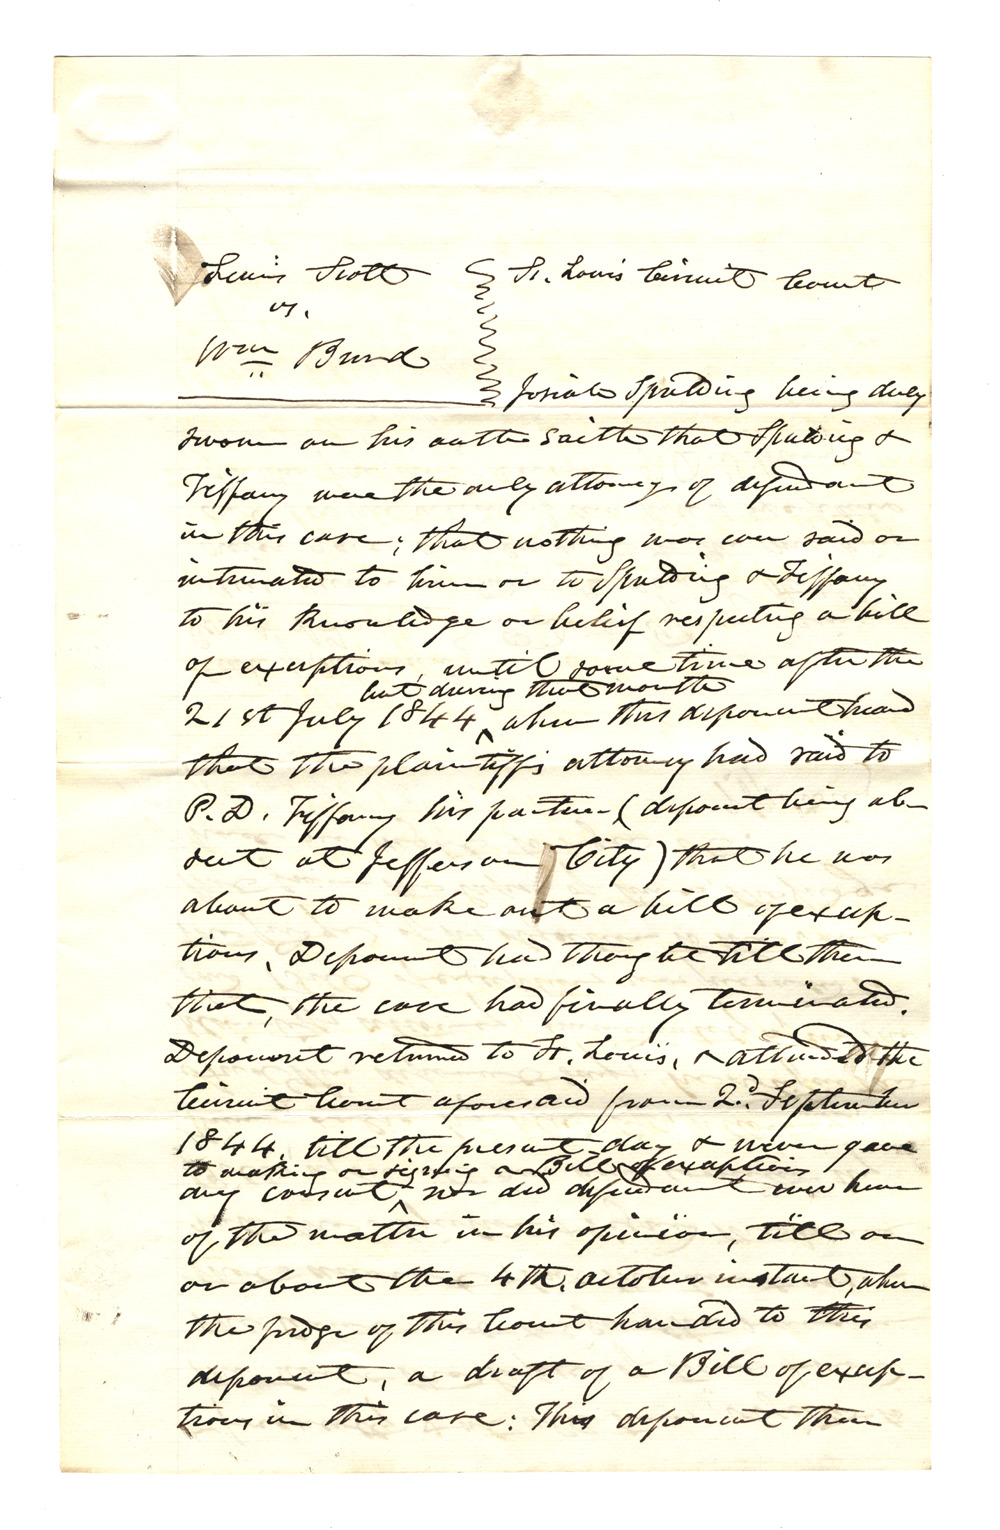 Lewis Scott St. Louis Circuit Court
vs.
Wm Burd
Josiah Spalding being duly
sworn on his oath saith that Spalding &
Tiffany were the only attorneys of defendant
in this case; that nothing was ever said or
intimated to him or to Spalding & Tiffany
to his knowledge or belief respecting a bill
of exceptions, until some time after the
but during that month
21st July 1844 ^ when this deponent heard
that the plaintiffs attorney had said to
P. D. Tiffany his partner (deponent being ab-
sent at Jefferson City) that he was
about to make out a bill of excep-
tions, Deponent had thought till then
that, the case had finally terminated.
Deponent returned to St. Louis, & attended the
Circuit Court aforesaid from 2d. September
1844, till the present day & never gave
to making or signing a Bill of exceptions
any consent ^ nor did defendant ever hear
of the matter in his opinion, till on
or about the 4th. October instant, when
the judge of this Court handed to this
deponent, a draft of a Bill of excep-
tions in this case: This deponent then